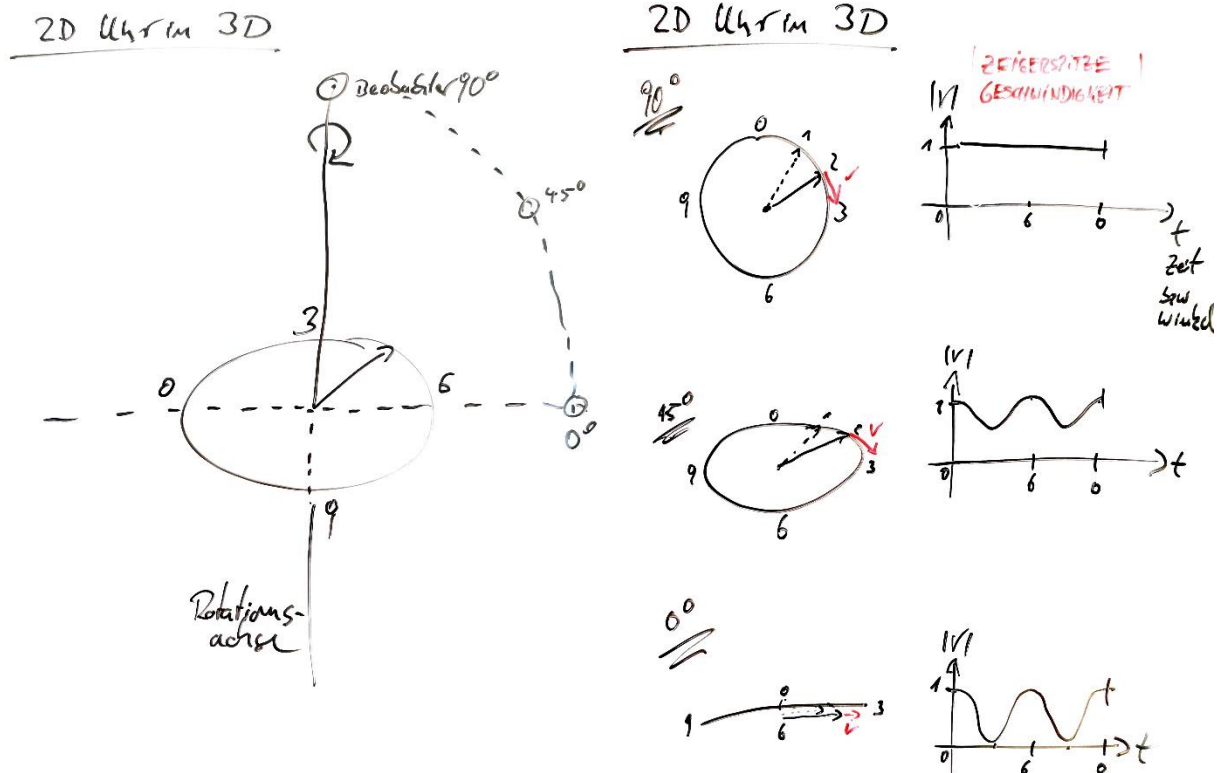 2D Uhr in 3D
Beobachter 90°
45°
3
0
6
0°
9
Rotations-
achse
2D Uhr in 3D
ZEIGERSPITZE
GESCHWINDIGKEIT
90°
0
1
2
3
6
9
|v|
1
0
6
0
t
Zeit
bzw
Winkel
45°
0
3
6
9
v
|v|
1
0
6
0
t
0°
0
3
6
9
v
|v|
1
0
6
0
t